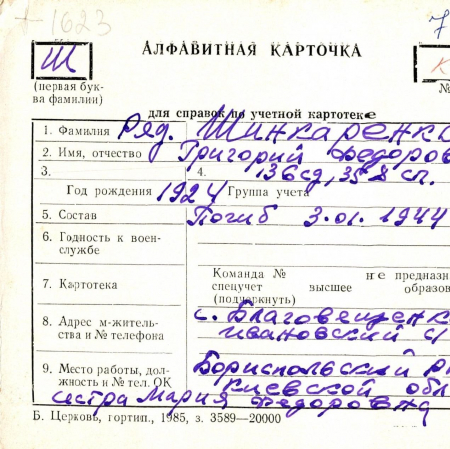 + 1623
7
Ш
АЛФАВИТНАЯ КАРТОЧКА
К
(первая бук-
ва фамилии)
№
для справок по учетной картотеке
1. Фамилия Ряд. Шинкаренко
2. Имя, отчество Григорий Федоров
3. 4. 136 сд, 358 сп.
Год рождения 1924 Группа учета
5. Состав Погиб 3.01.1944
6. Годность к воен-
службе
Команда № не предназн
7. Картотека спецучет высшее образов
(подчеркнуть)
8. Адрес м-житель-
ства и № телефона с. Благовещенк
ивановский с/
9. Место работы, дол-
жность и № тел. ОК Бориспольский р
Киевской обл
сестра Мария Федоровна
Б. Церковь, гортип., 1985, з. 3589—20000